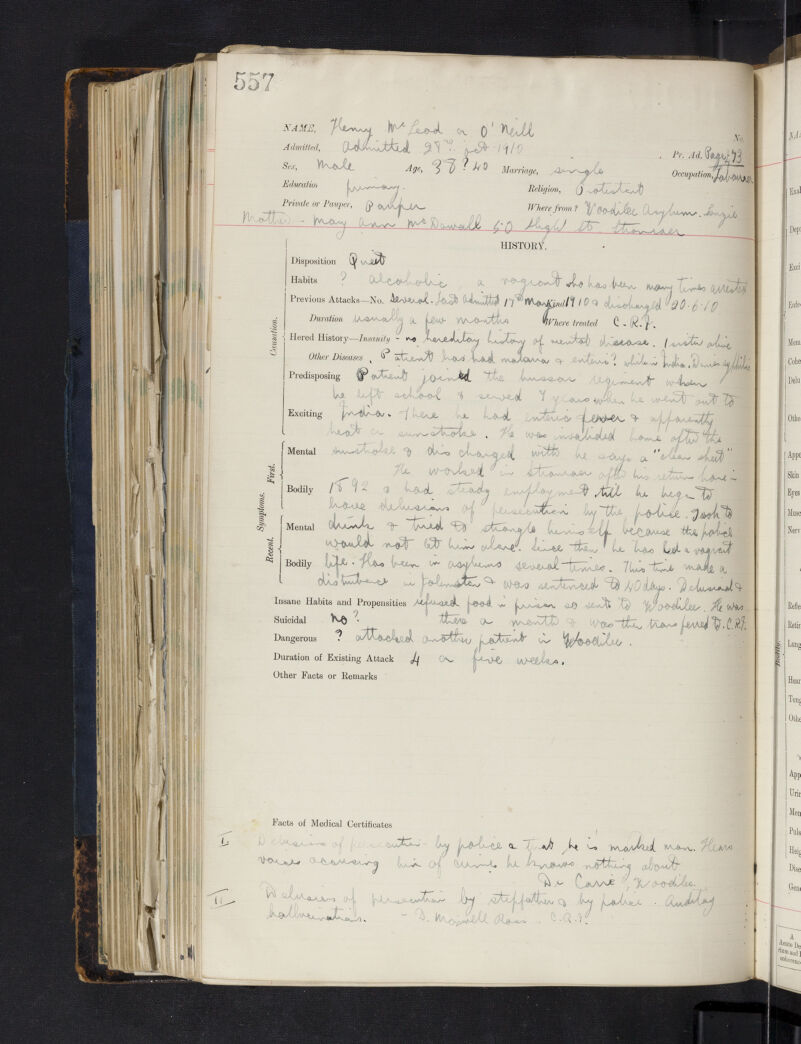 557
NAME, Henry McLead or O'Neill
No.
Admitted, Admitted 28th Oct 1910
Pr. Ad. Page 73
Sex, Male Age, 38? 40 Marriage, single Occupation, Labourer
Education primary. Religion, Protestant
Private or Pauper, Pauper Where from? Woodilee Asylum. Lenzie
Mother - May Ann McDowall 50 High St Stranraer
HISTORY.
Disposition Quiet
Habits ? alcoholic, a vagrant who has been many times arrested
Previous Attacks—No. several. Last admitted 17th May Kind 1910 & discharged 20.6.10
Duration usually a few months Where treated C.R.I.
Hered History—Insanity - no hereditary history of mental disease. 1 sister alive
Other Diseases, Patient has had malaria & enteric? while in India. Denies syphilis
Predisposing Patient joined the hussar regiment when
he left school & served 7 years when he went out to
Exciting India. There he had enteric fever & apparently
heat or sunstroke. He was invalided home after the
Mental sunstroke & discharged with he says a "clean sheet"
He worked in Stranraer after his return home in
Bodily 1892 & had steady employment till he began to
have delusions of persecution by the police. Took to
Mental drink & tried to strangle himself because the police
would not let him alone. Since then he has led a vagrant
Bodily life. Has been in asylums several times. This time made a
disturbance in & was sentenced to 40 days. Delusional &
Insane Habits and Propensities refused food in prison so sent to Woodilee. He was
Suicidal No? there a month & was then transferred to C.R.I.
Dangerous ? attacked another patient in Woodilee.
Duration of Existing Attack 4 or five weeks.
Other Facts or Remarks
Causation.
Symptoms.
First.
Recent.
Facts of Medical Certificates
I Delusions of persecution by police & that he is marked man. Hears
voices accusing him of crimes he knows nothing about
Dr Carre, Woodilee.
II Delusions of persecution by stepfather & by police. Auditory
hallucinations. - D. Maxwell Ross. C.R.I.